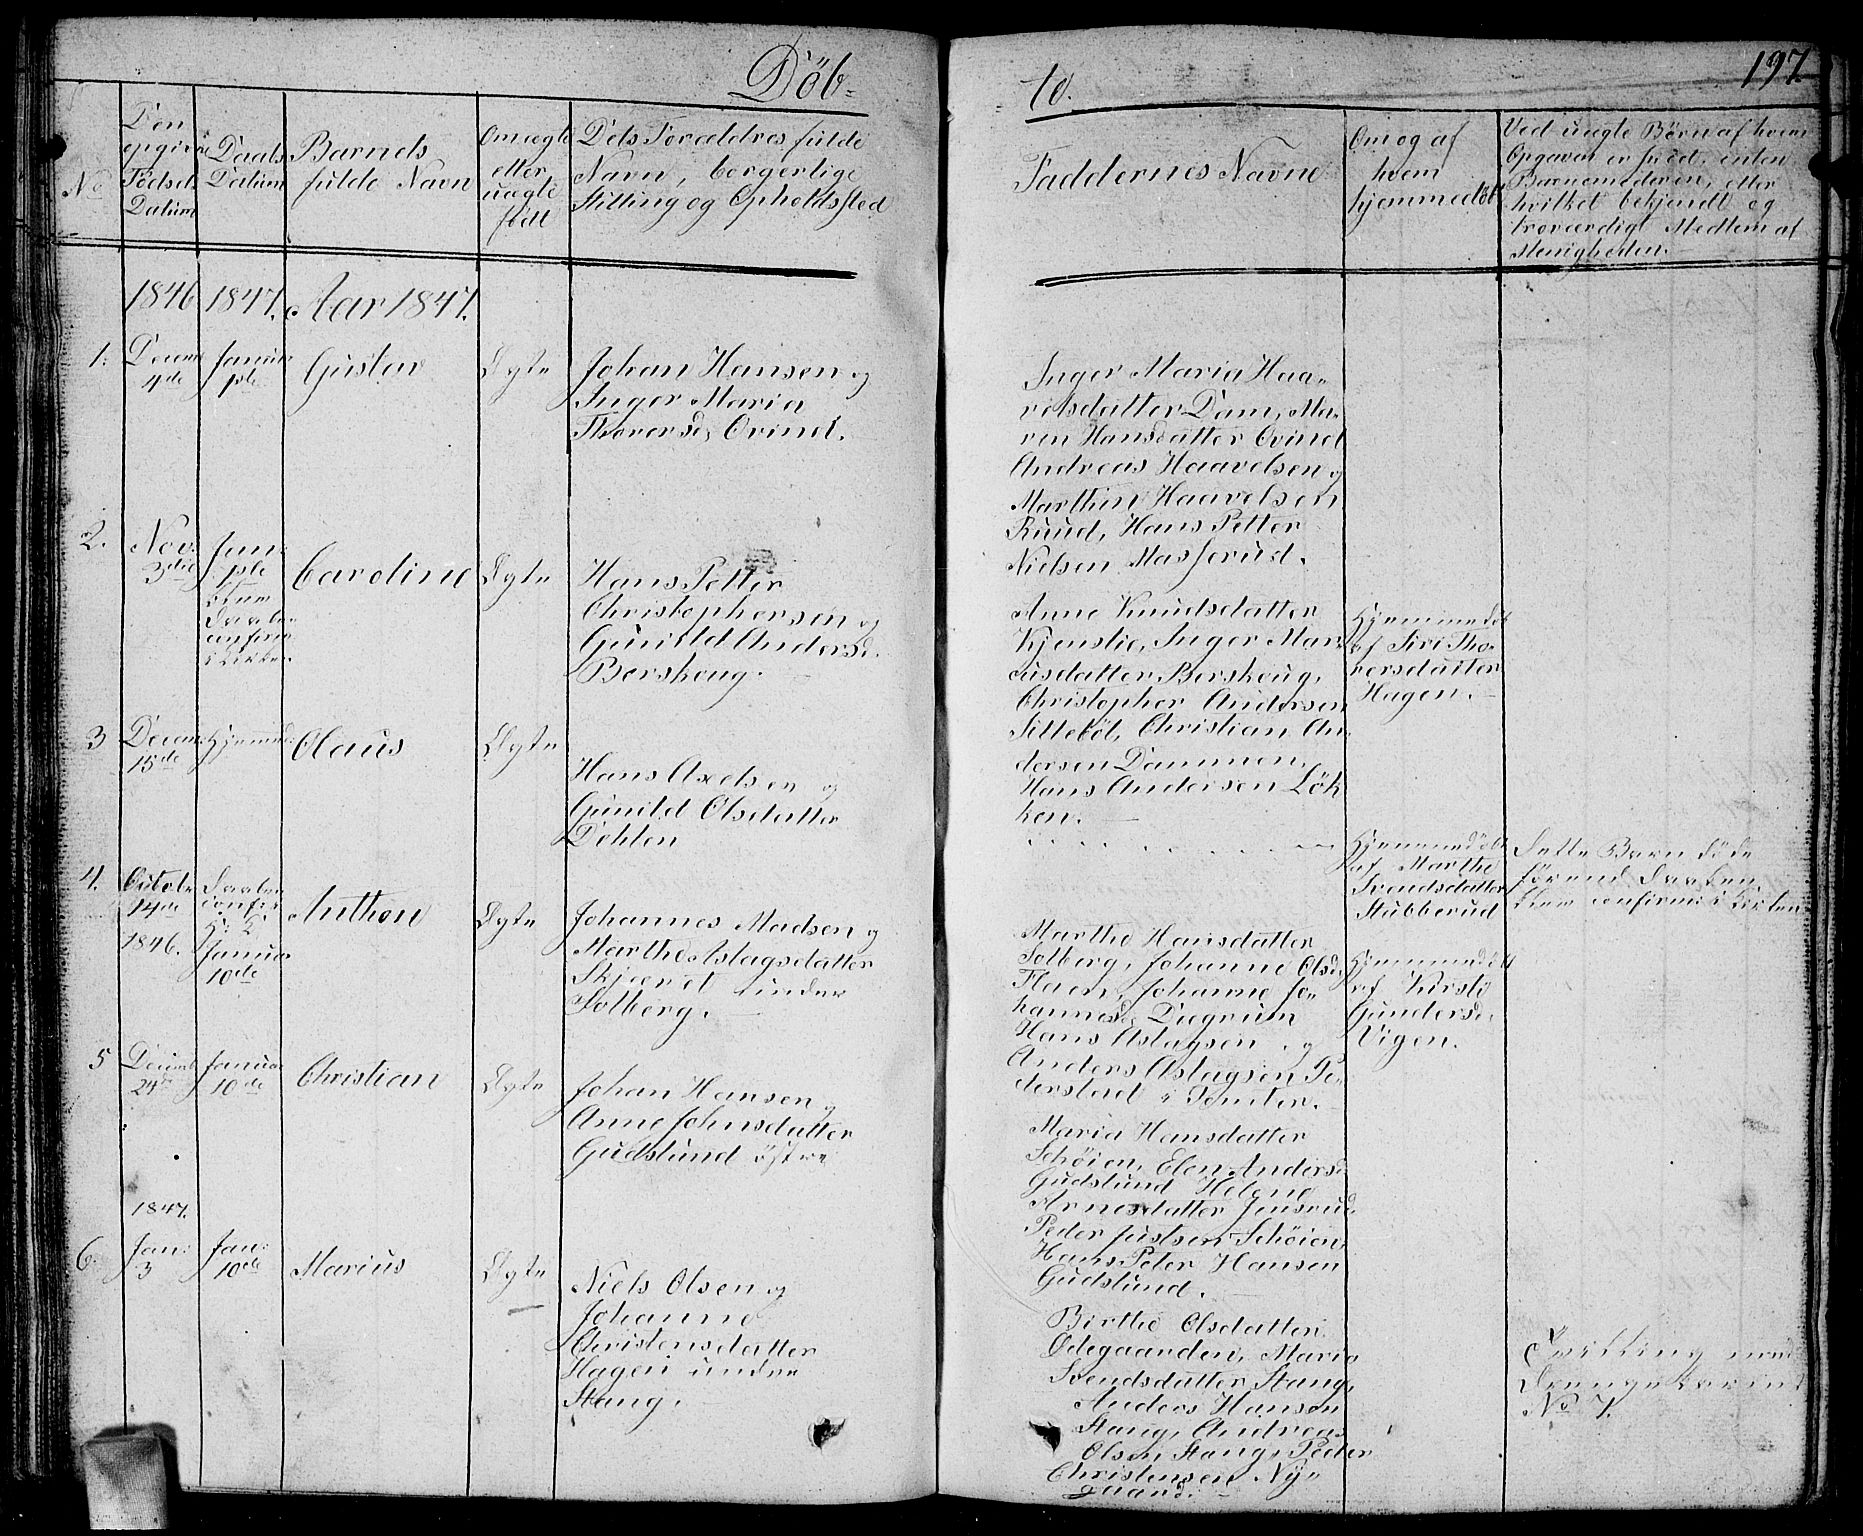 Döb-
to.
197.
No
Den
opgivne
Födsels
Datum
Daabs
Datum
Barnets
fulde Navn
Om ægte
eller
uægte
födt
Dets Forældres fulde
Navn, borgerlige
Stilling og Opholdssted
Faddernes Navne
Om og af
hvem
hjemmedöbt
Ved uægte Börn af hvem
Opgaven er skeed, enten
Barnemoderen, eller
hvilket bekjendt og
troværdigt Medlem af
Menigheden.
1846 1847. Aar 1847.
1.
Decemb
4de
Januar
1ste
Gustav
Ægte
Johan Hansen og
Inger Maria
Thoversd. Ovind.
Inger Maria Haa-
velsdatter Dam, Ma-
ren Hansdatter Ovind
Andreas Haavelsen og
Marthin Haavelsen
Ruud, Hans Petter
Nielsen Masserud.
2.
Nov.
3die
Jan.
1ste
blev
Daaben
confirm
i Kirken.
Caroline
Ægte
Hans Petter
Christophersen og
Gunild Andersd.
Bershoug.
Anne Knudsdatter
Kjenslie, Inger Mar-
iusdatter Bershoug,
Christopher Andersen
Sillebøl, Christian An-
dersen Dammen,
Hans Andersen Lök-
ken.
Hjemmedöbt
af Siri Tho-
versdatter
Hagen.
3
Decem.
15de
Hjemmed.
Olaus
Ægte
Hans Axelsen og
Gunild Olsdatter
Dohlen
Hjemmedöbt
af Marthe
Svendsdatter
Stubberud
Dette Barn döde
förend Daaben
blev confirm. i Kirken
4.
Octobr
14de
1846.
Daaben
confir.
i K.
Januar
10de
Anthon
Ægte
Johannes Madsen og
Marthe Aslagsdatter
Skjæret under
Solberg.
Marthe Hansdatter
Solberg, Johanne Olsd.
Flaen, Johanne Jo-
hannesd. Duegrum
Hans Aslagsen og
Anders Aslagsen Pe-
derstad i Tomter.
Hjemmedöbt
af Kirsti
Gundersd.
Vigen.
5
Decemb
24de
Januar
10de
Christian
Ægte
Johan Hansen og
Anne Johnsdatter
Gudslund östre
Maria Hansdatter
Schöien, Elen Andersd.
Gudslund Helene
Arnesdatter Jensrud
Peder Justsen Schöien,
Hans Peter Hansen
Gudslund.
1847.
6.
Jan:
3
Jan:
10de
Marius
Ægte
Niels Olsen og
Johanne
Christensdatter
Hagen under
Stang.
Birthe Olsdatter
Ödegaarden, Maria
Svendsdatter Stang,
Anders Hansen
Stang, Andreas
Olsen Stang, Peder
Christensen Ny-
gaard.
Tvilling med
Drengebarnet
No 7.